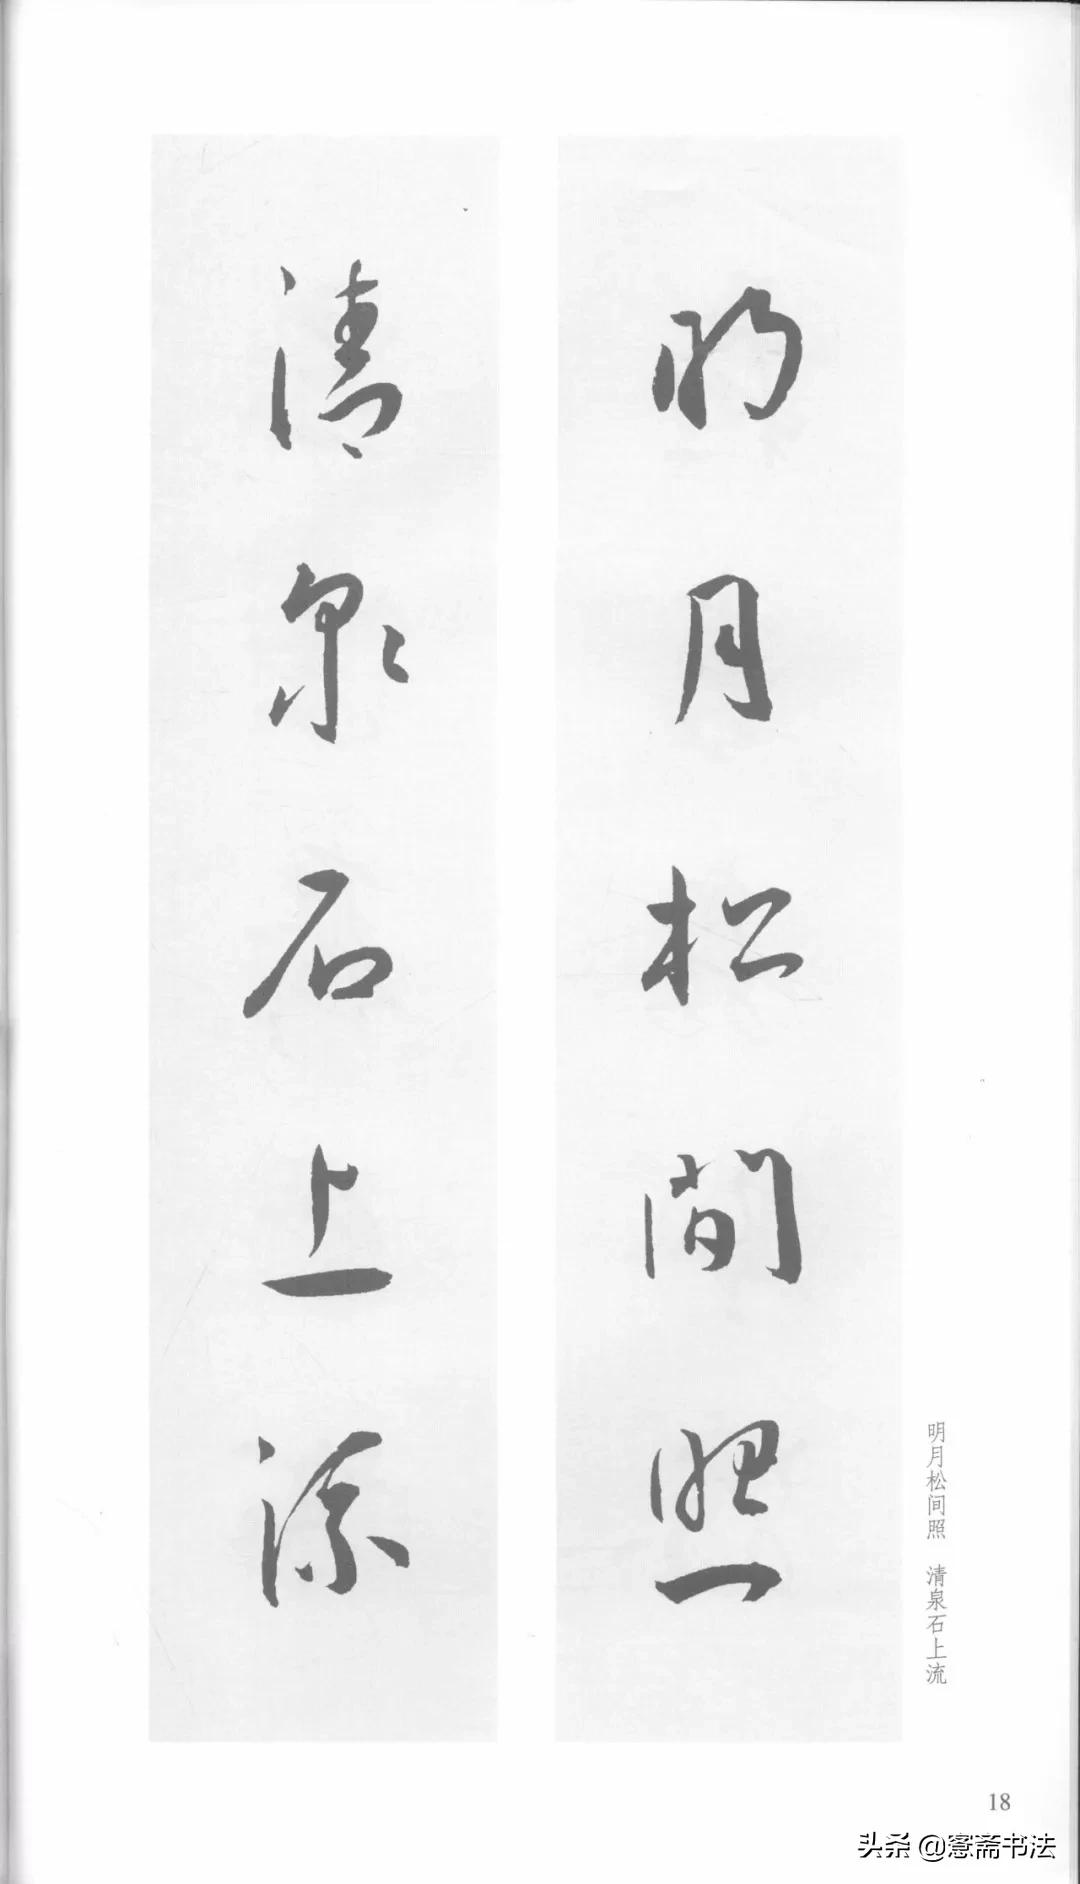 明月松間照
清泉石上流
明月松间照 清泉石上流
18
头条 @窓斋书法